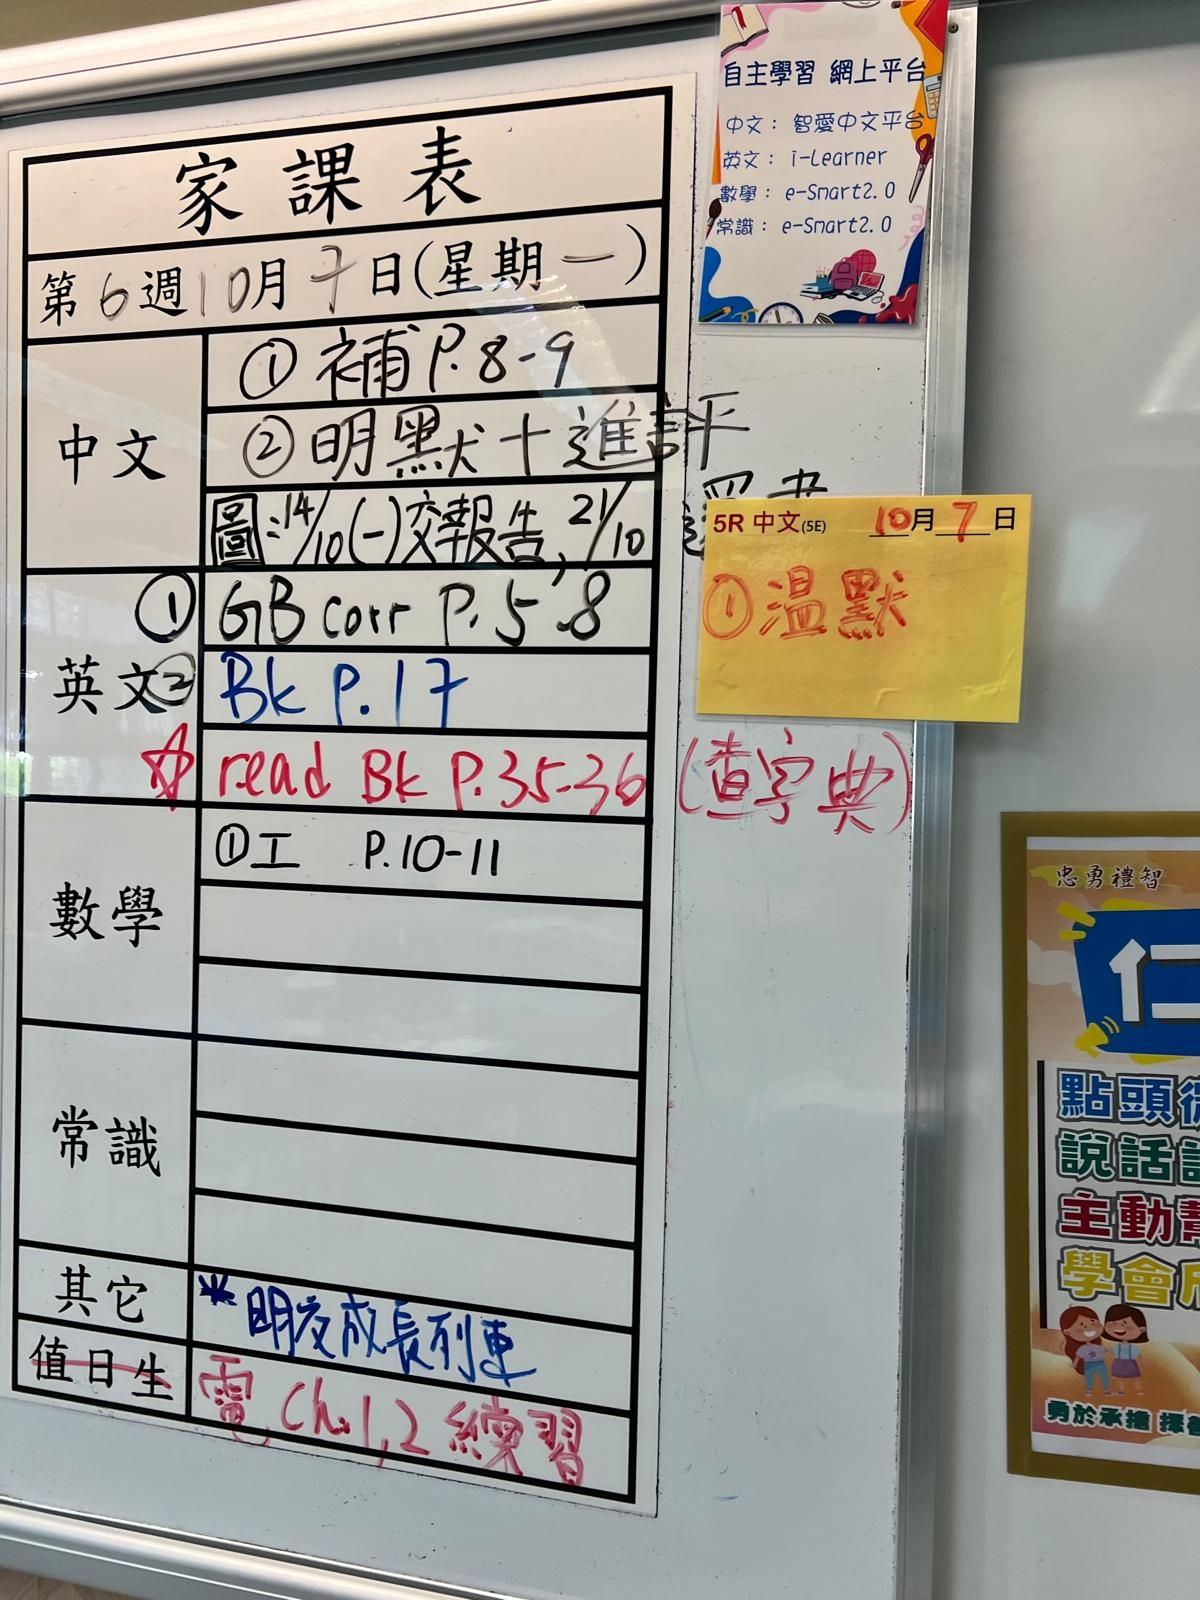 家課表
第6週10月7日(星期一)
中文
① 補 P.8-9
② 明默+進評
圖:14/10(一)交報告,21/10
英文
① GB corr P.5,8
② Bk P.17
☆ read Bk P.35-36 (查字典)
數學
①工 P.10-11
常識
其它
*明交成長列車
值日生
電 Ch.1,2 練習
自主學習 網上平台
中文: 智愛中文平台
英文: i-Learner
數學: e-Smart2.0
常識: e-Smart2.0
5R 中文(5E) 10月7日
①溫默
忠勇禮智
仁
點頭
說話
主動
學會
勇於承擔